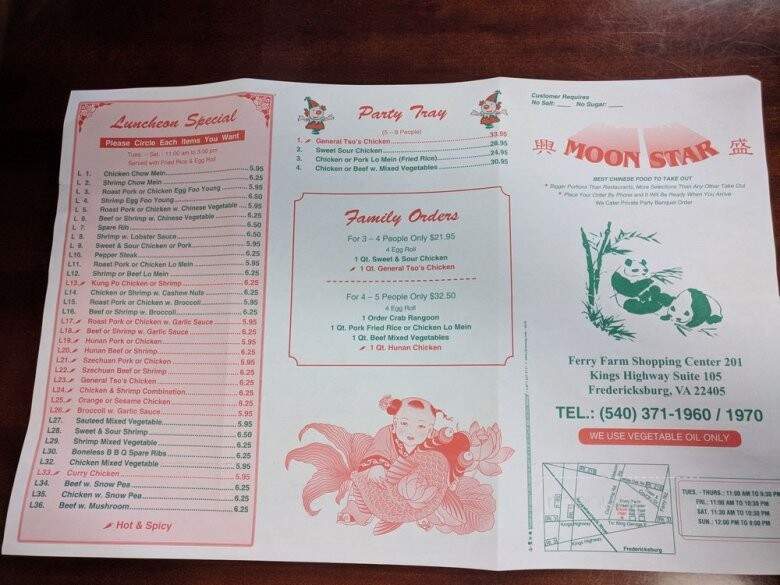 Luncheon Special
Please Circle Each Items You Want
Tues. - Sat. - 11:00 am to 3:00 pm
Served with Fried Rice & Egg Roll
L 1. Chicken Chow Mein 5.95
L 2. Shrimp Chow Mein 6.25
L 3. Roast Pork or Chicken Egg Foo Young 5.95
L 4. Shrimp Egg Foo Young 6.50
L 5. Roast Pork or Chicken w. Chinese Vegetable 5.95
L 6. Beef or Shrimp w. Chinese Vegetable 6.25
L 7. Spare Rib 6.50
L 8. Shrimp w. Lobster Sauce 6.25
L 9. Sweet & Sour Chicken or Pork 5.95
L10. Pepper Steak 6.25
L11. Roast Pork or Chicken Lo Mein 5.95
L12. Shrimp or Beef Lo Mein 6.25
L13. Kung Po Chicken or Shrimp 6.25
L14. Chicken or Shrimp w. Cashew Nuts 6.25
L15. Roast Pork or Chicken w. Broccoli 5.95
L16. Beef or Shrimp w. Broccoli 6.25
L17. Roast Pork or Chicken w. Garlic Sauce 5.95
L18. Beef or Shrimp w. Garlic Sauce 6.25
L19. Hunan Pork or Chicken 5.95
L20. Hunan Beef or Shrimp 6.25
L21. Szechuan Pork or Chicken 5.95
L22. Szechuan Beef or Shrimp 6.25
L23. General Tso's Chicken 6.25
L24. Chicken & Shrimp Combination 6.25
L25. Orange or Sesame Chicken 6.25
L26. Broccoli w. Garlic Sauce 5.95
L27. Sauteed Mixed Vegetable 5.95
L28. Sweet & Sour Shrimp 6.50
L29. Shrimp Mixed Vegetable 6.25
L30. Boneless B B Q Spare Ribs 6.25
L32. Chicken Mixed Vegetable 5.95
L33. Curry Chicken 5.95
L34. Beef w. Snow Pea 6.25
L35. Chicken w. Snow Pea 5.95
L36. Beef w. Mushroom 6.25
Hot & Spicy
Party Tray
(5 - 8 People)
1. General Tso's Chicken 33.95
2. Sweet Sour Chicken 28.95
3. Chicken or Pork Lo Mein (Fried Rice) 24.95
4. Chicken or Beef w. Mixed Vegetables 30.95
Family Orders
For 3 – 4 People Only $21.95
4 Egg Roll
1 Qt. Sweet & Sour Chicken
1 Qt. General Tso's Chicken
For 4 – 5 People Only $32.50
4 Egg Roll
1 Order Crab Rangoon
1 Qt. Pork Fried Rice or Chicken Lo Mein
1 Qt. Beef Mixed Vegetables
1 Qt. Hunan Chicken
Customer Requires
No Salt: ____ No Sugar: ____
興 MOON STAR 盛
BEST CHINESE FOOD TO TAKE OUT
* Bigger Portions Than Restaurants, More Selections Than Any Other Take Out
* Place Your Order By Phone and It Will Be Ready When You Arrive
We Cater Private Party Banquet Order
Ferry Farm Shopping Center 201
Kings Highway Suite 105
Fredericksburg, VA 22405
TEL.: (540) 371-1960 / 1970
WE USE VEGETABLE OIL ONLY
Kings Highway
Kings Highway
Fredericksburg
TUES. - THURS.: 11:00 AM TO 9:30 PM
FRI.: 11:00 AM TO 10:30 PM
SAT.: 11:30 AM TO 10:30 PM
SUN.: 12:00 PM TO 9:00 PM